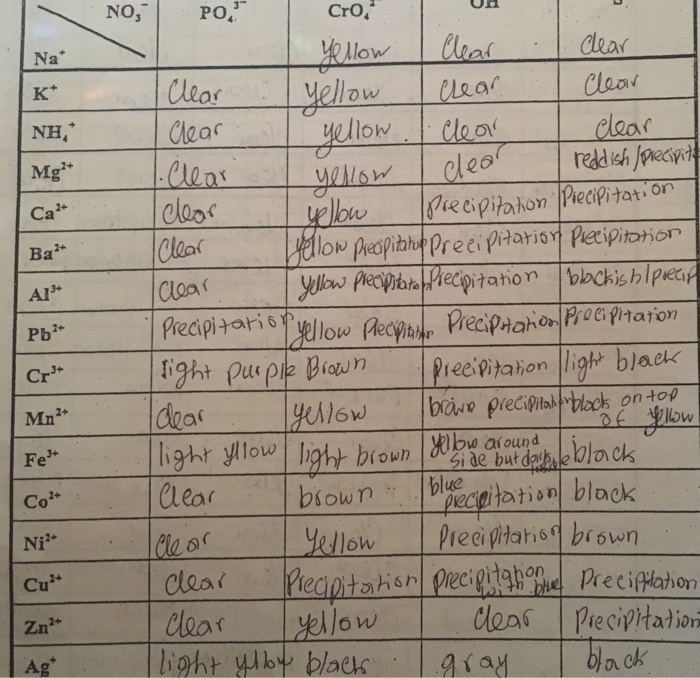 NO₃⁻ PO₄³⁻ CrO₄²⁻ OH⁻
Na⁺ yellow Clear clear
K⁺ Clear yellow clear Clear
NH₄⁺ clear yellow. clear clear
Mg²⁺ .Clear yellow clear reddish/precipit
Ca²⁺ clear yellow Precipitation Precipitation
Ba²⁺ Clear yellow Precipitation Precipitation Precipitation
Al³⁺ clear yellow Precipitation Precipitation blackish/precip
Pb²⁺ Precipitation yellow Precipitation Precipitation Precipitation
Cr³⁺ light purple Brown Precipitation light black
Mn²⁺ clear yellow brown precipitation black on top
of yellow
Fe³⁺ light yllow light brown yellow around black
side but dark
Co²⁺ Clear brown blue black
precipitation
Ni²⁺ clear Yellow Precipitation brown
Cu²⁺ clear Precipitation precipitation Precipitation
with blue
Zn²⁺ clear yellow Clear Precipitation
Ag⁺ light yllow black gray black